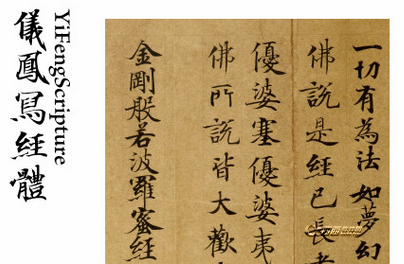 儀鳳寫經體
YiFengScripture
一切有為法如夢幻
佛說是經已長
優婆塞優婆夷
佛所說皆大歡
金剛般若波羅蜜經